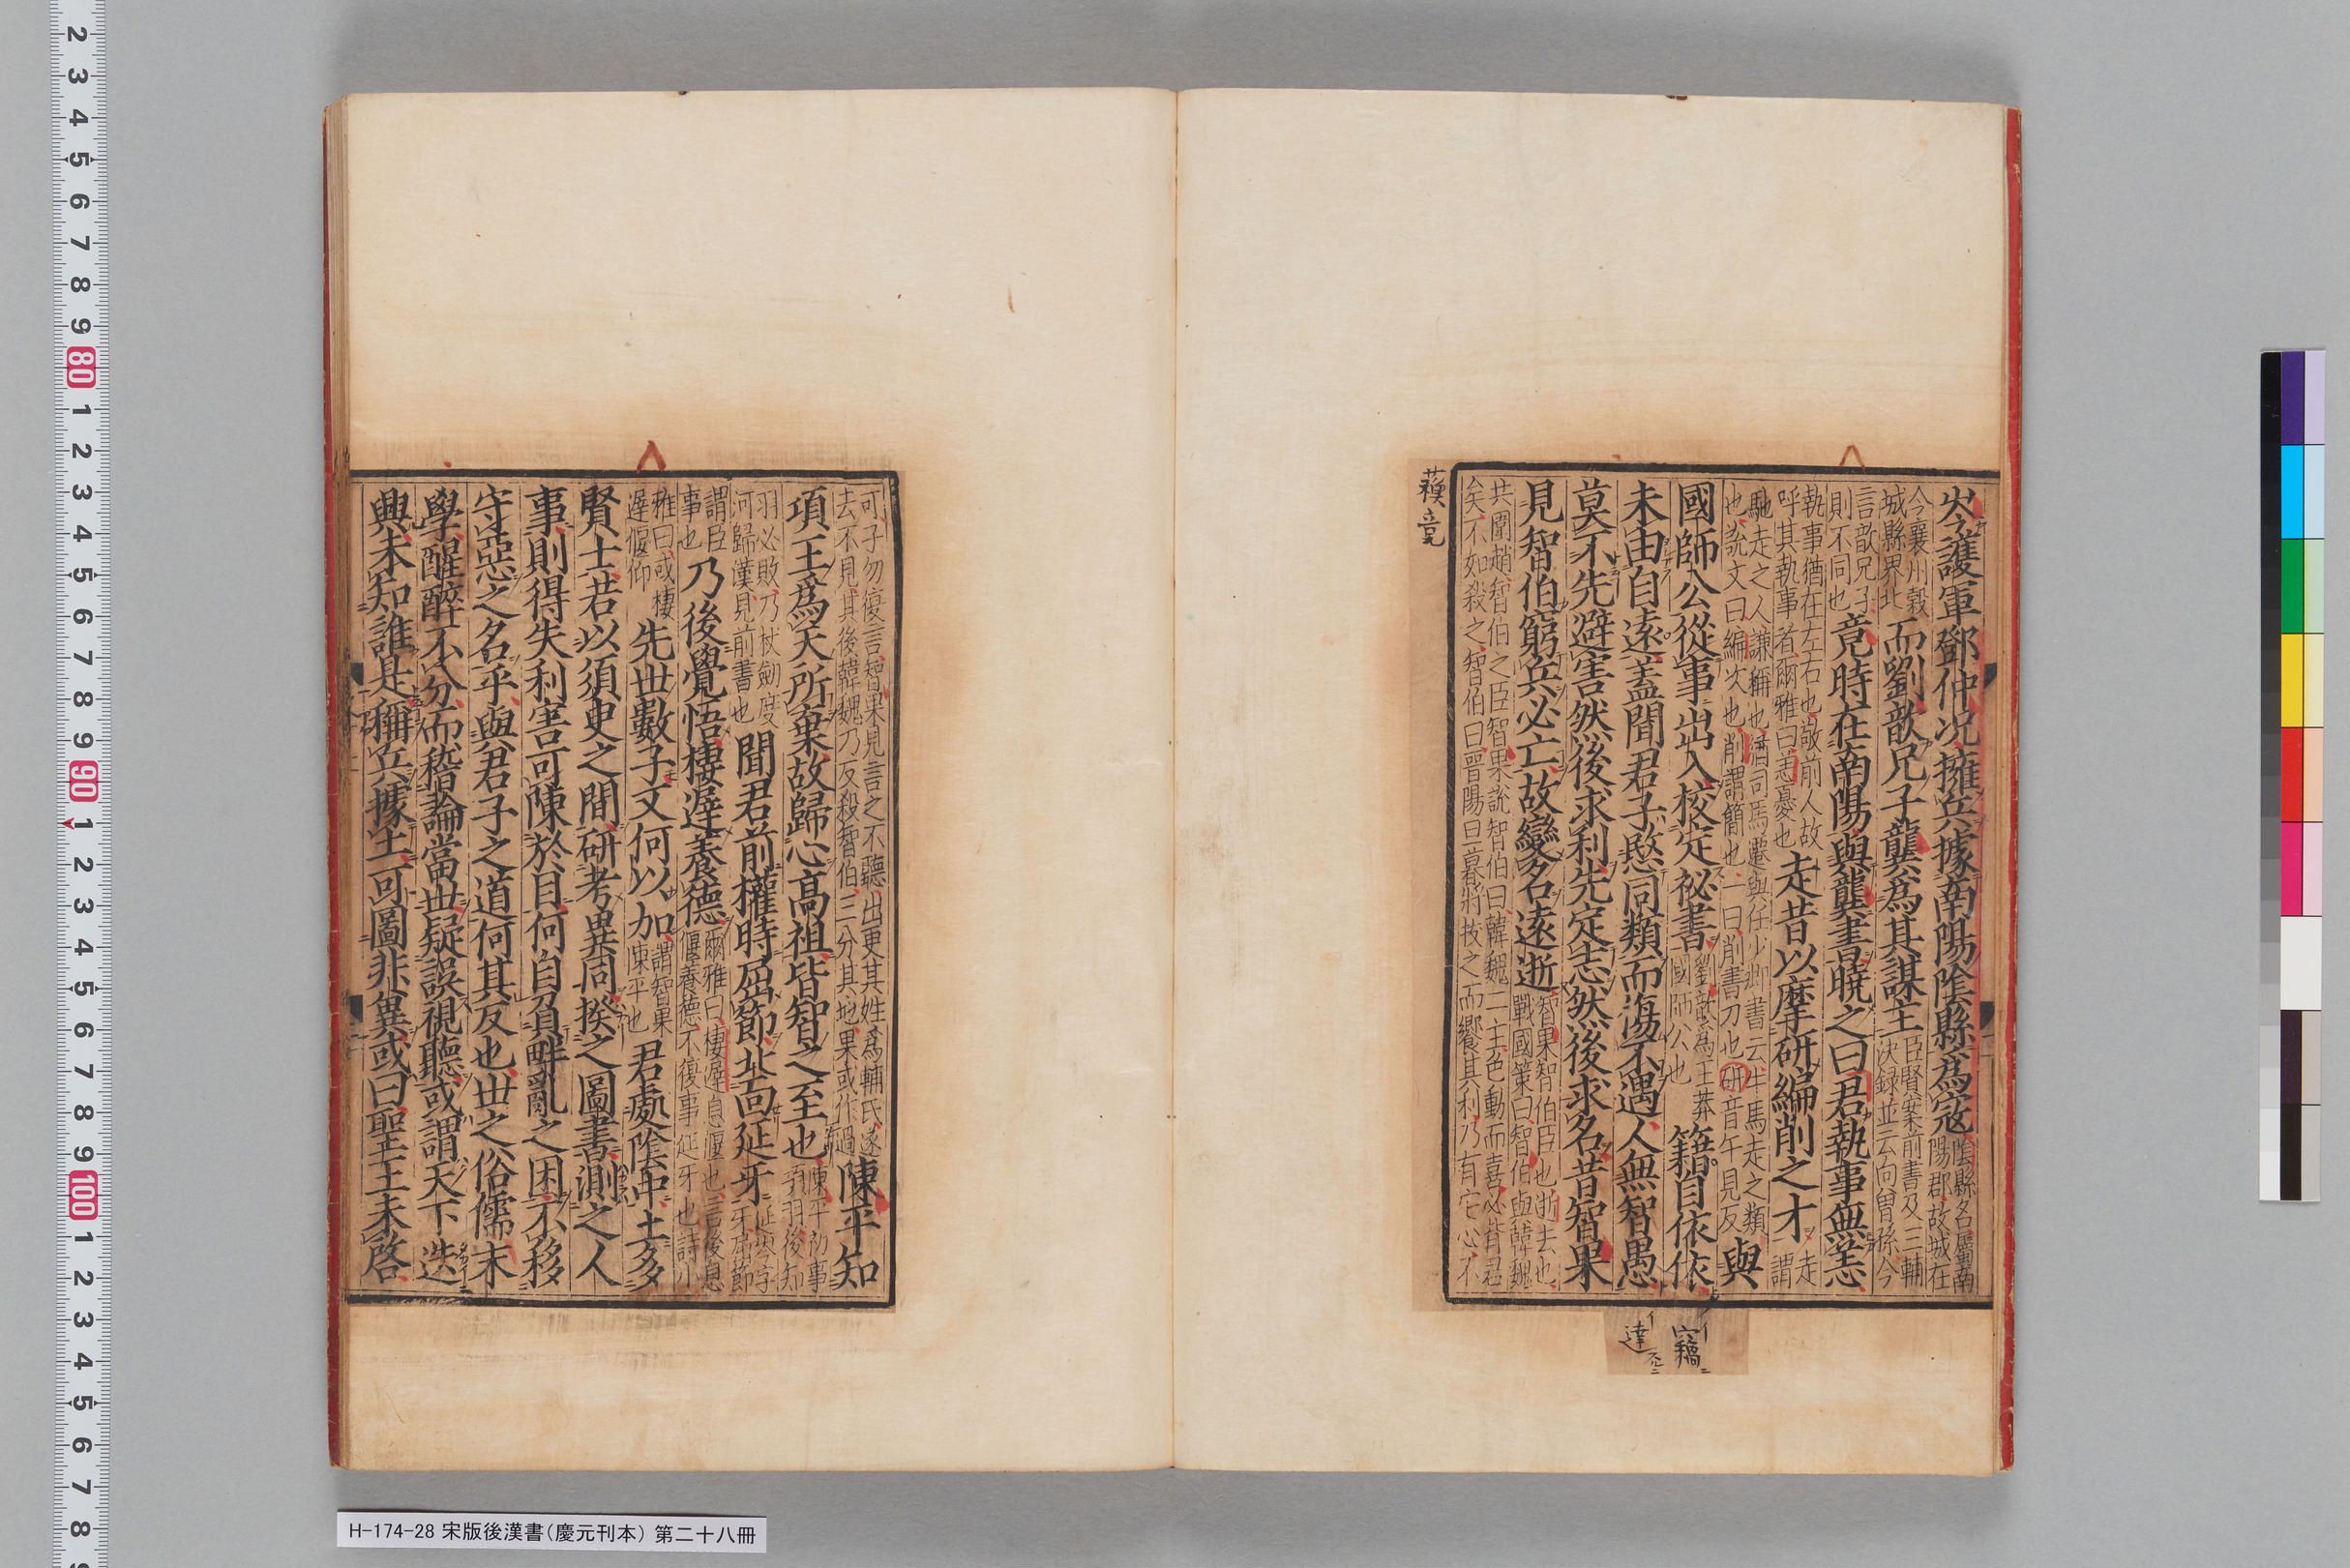 岑護軍鄧仲况擁兵據南陽陰縣爲寇
陰縣名屬南
陽郡故城在
今襄州穀
城縣界北
而劉歆兄子龔爲其謀主
臣賢案前書及三輔
決録並云向曽孫今
言歆兄子
則不同也
竟時在南陽與龔書曉之曰君執事無恙
執事猶在左右也敬前人故
呼其執事者爾雅曰恙憂也
走昔以摩研編削之才
走
謂
馳走之人謙稱也猶司馬遷與任少卿書云牛馬走之類
也説文曰編次也削謂簡也一曰削書刀也研音午見反
與
國師公從事出入校定祕書
劉歆爲王莽
國師公也
籍自依依
未由自遠蓋聞君子愍同類而傷不遇人無智愚
莫不先避害然後求利先定志然後求名昔智果
見智伯窮兵必亡故變名遠逝
智果智伯臣也逝去也
戰國策曰智伯與韓魏
共圍趙智伯之臣智果説智伯曰韓魏二主色動而喜必背君
矣不如殺之智伯曰晋陽旦暮將拔之而饗其利乃有它心不
蘓竟
竊
達
可子勿復言智果見言之不聽出更其姓爲輔氏遂
去不見其後韓魏乃反殺智伯三分其地果或作過
陳平知
項王爲天所棄故歸心高祖皆智之至也
陳平初事
項羽後知
羽必敗乃杖劔度
河歸漢見前書也
聞君前權時屈節北面延牙
延岑字
牙屈節
謂臣
事也
乃後覺悟棲遲養德
爾雅曰棲遲息偃也言後息
偃養德不復事延牙也詩小
雅曰或棲
遲偃仰
先世數子又何以加
謂智果
陳平也
君處陰中土多
賢士若以須臾之間研考異同揆之圖書測之人
事則得失利害可陳於目何自負畔亂之困不移
守惡之名乎與君子之道何其反也世之俗儒末
學醒醉不分而稽論當世疑誤視聽或謂天下迭
興未知誰是稱兵據土可圖非冀或曰聖王未啓
H-174-28 宋版後漢書(慶元刊本) 第二十八冊